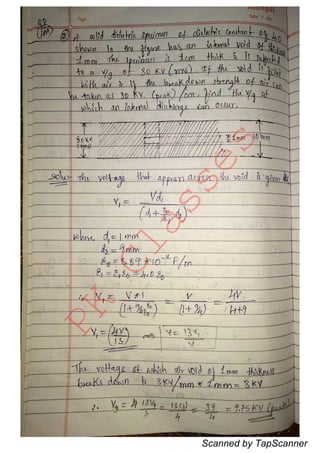 Q.8
② A solid dielectric specimen of dielectric constant of 4.0
shown in the figure has an internal void of thickness
1mm. The specimen is 1cm thick & is subjected
to a v/g of 80 KV (rms). If the void is filled
with air & if the breakdown strength of air can
be taken as 30 KV (peak)/cm. find the v/g at
which an internal discharge can occur.
1mm 10mm
(rms)
Soln:- The voltage that appears across the void is given
V₁ = Vd₁ / (d₁ + ε₀/ε₁ d₂)
where, d₁ = 1mm
d₂ = 9mm
ε₀ = 8.89*10⁻¹² F/m
ε₁ = εᵣε₀ = 4.0 ε₀
∴ V₁ = V*1 / (1+9ε₀/4ε₀) = V / (1+9/4) = 4V / 4+9
V₁ = (4V/13) ⇒ V = 13V₁ / 4
The voltage at which air void of 1mm thickness
breaks down is 3KV/mm * 1mm = 3KV
= 13(3)/4 = 39/4 = 9.75 KV (peak)
PK Classes
Scanned by TapScanner